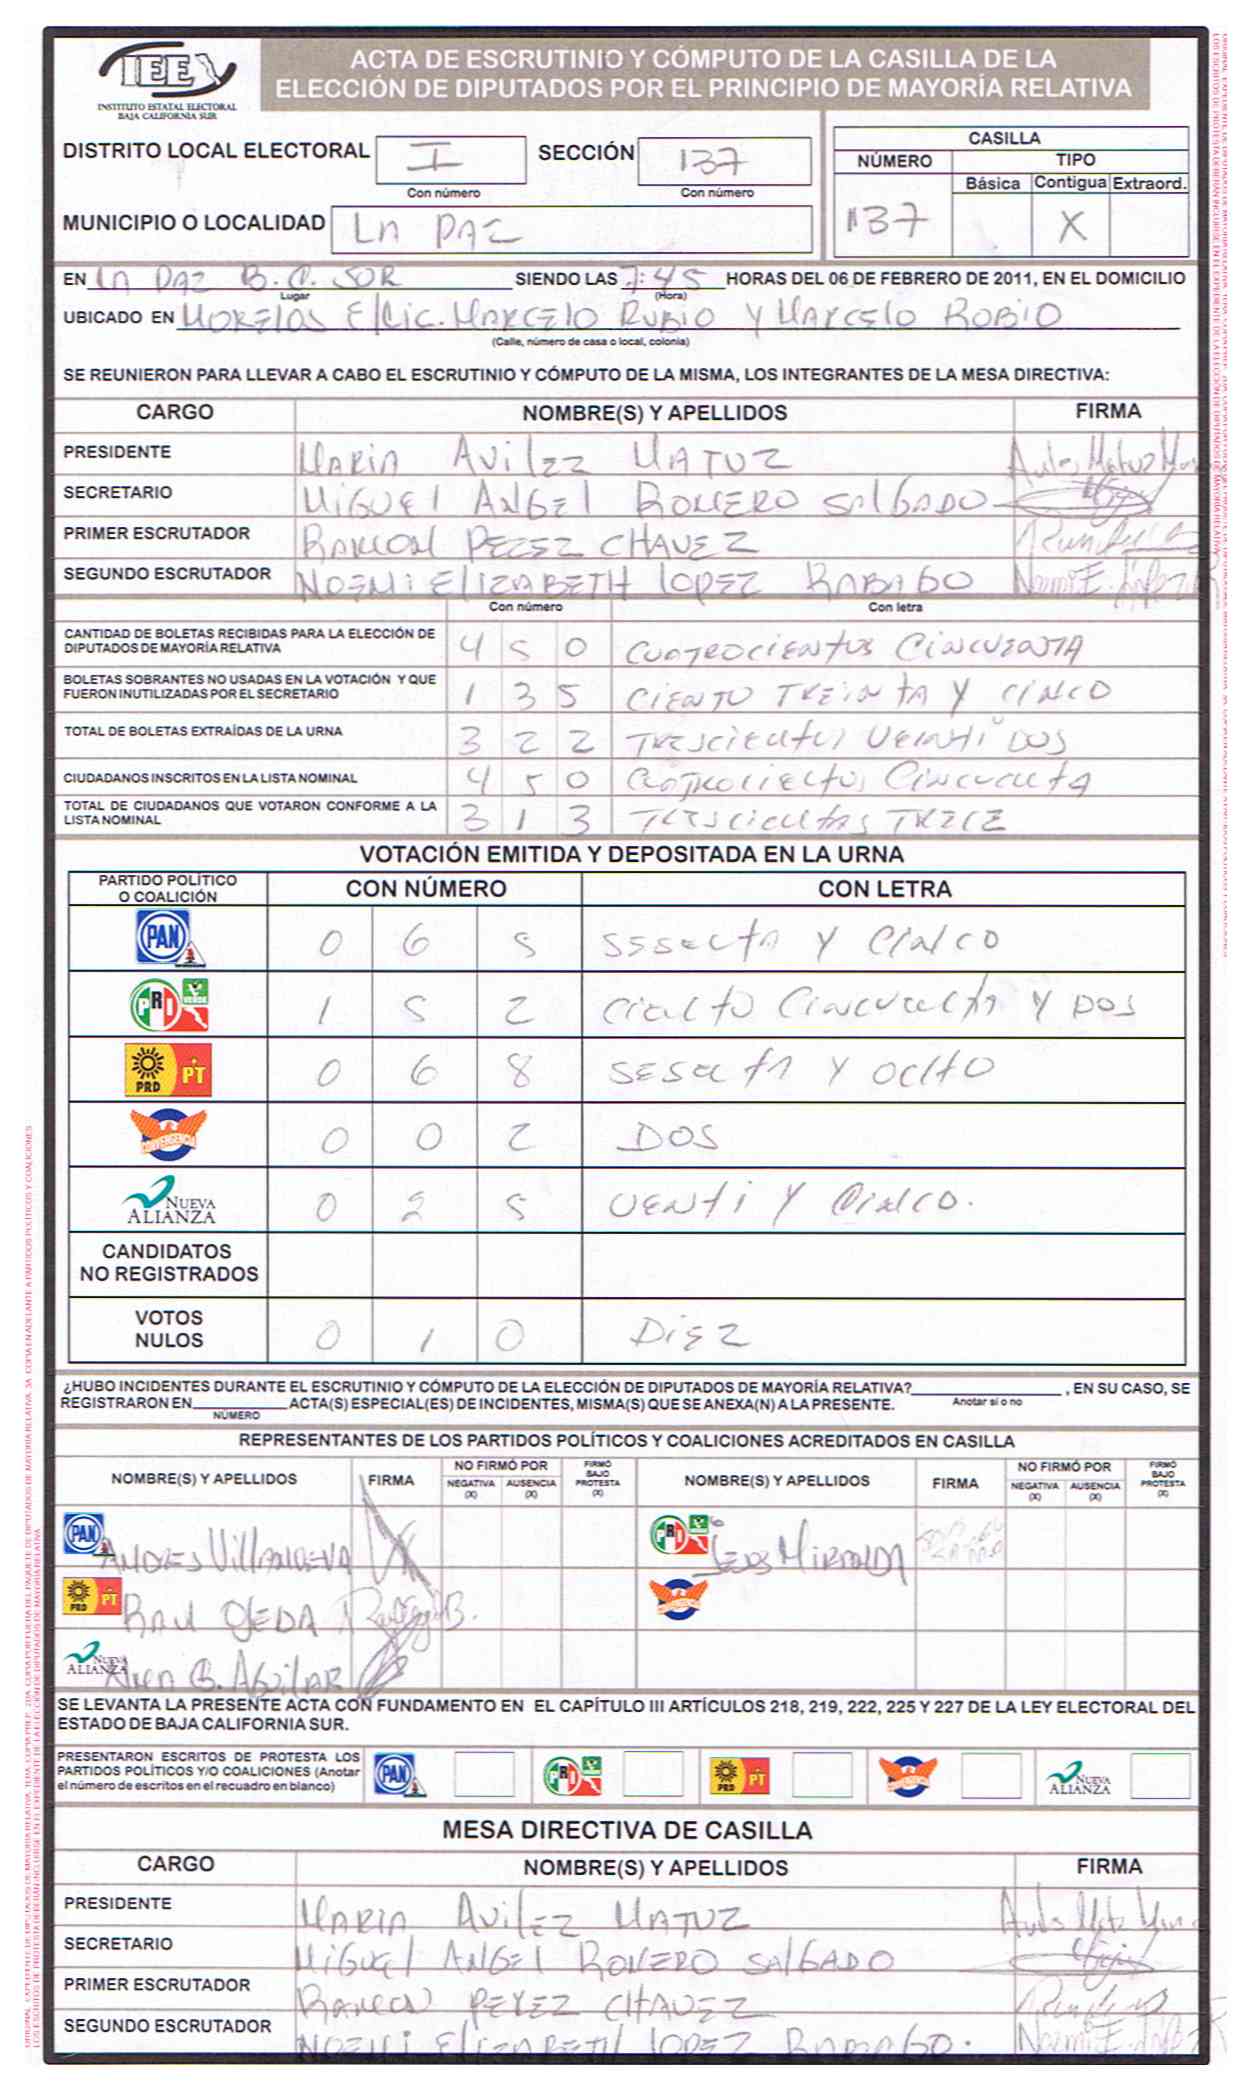 IEE
INSTITUTO ESTATAL ELECTORAL
BAJA CALIFORNIA SUR
ACTA DE ESCRUTINIO Y CÓMPUTO DE LA CASILLA DE LA
ELECCIÓN DE DIPUTADOS POR EL PRINCIPIO DE MAYORÍA RELATIVA
DISTRITO LOCAL ELECTORAL I SECCIÓN 137
Con número Con número
MUNICIPIO O LOCALIDAD LA PAZ
CASILLA
NÚMERO TIPO
Básica Contigua Extraord.
137 X
EN LA PAZ B.C. SUR SIENDO LAS 7:45 HORAS DEL 06 DE FEBRERO DE 2011, EN EL DOMICILIO
Lugar (Hora)
UBICADO EN MORELOS E/LIC. MARCELO RUBIO Y MARCELO RUBIO
(Calle, número de casa o local, colonia)
SE REUNIERON PARA LLEVAR A CABO EL ESCRUTINIO Y CÓMPUTO DE LA MISMA, LOS INTEGRANTES DE LA MESA DIRECTIVA:
CARGO NOMBRE(S) Y APELLIDOS FIRMA
PRESIDENTE MARIA AVILEZ MATUZ
SECRETARIO MIGUEL ANGEL ROMERO SALGADO
PRIMER ESCRUTADOR RAMON PEREZ CHAVEZ
SEGUNDO ESCRUTADOR NOEMI ELIZABETH LOPEZ RABAGO
Con número Con letra
CANTIDAD DE BOLETAS RECIBIDAS PARA LA ELECCIÓN DE
DIPUTADOS DE MAYORÍA RELATIVA 4 5 0 CUATROCIENTOS CINCUENTA
BOLETAS SOBRANTES NO USADAS EN LA VOTACIÓN Y QUE
FUERON INUTILIZADAS POR EL SECRETARIO 1 3 5 CIENTO TREINTA Y CINCO
TOTAL DE BOLETAS EXTRAÍDAS DE LA URNA 3 2 2 TRESCIENTOS VEINTI DOS
CIUDADANOS INSCRITOS EN LA LISTA NOMINAL 4 5 0 CUATROCIENTOS CINCUENTA
TOTAL DE CIUDADANOS QUE VOTARON CONFORME A LA
LISTA NOMINAL 3 1 3 TRESCIENTOS TRECE
VOTACIÓN EMITIDA Y DEPOSITADA EN LA URNA
PARTIDO POLÍTICO
O COALICIÓN CON NÚMERO CON LETRA
PAN 0 6 5 SESENTA Y CINCO
PRI VERDE 1 5 2 CIENTO CINCUENTA Y DOS
PRD PT 0 6 8 SESENTA Y OCHO
CONVERGENCIA 0 0 2 DOS
NUEVA ALIANZA 0 2 5 VENTI Y CINCO.
CANDIDATOS
NO REGISTRADOS
VOTOS
NULOS 0 1 0 DIEZ
¿HUBO INCIDENTES DURANTE EL ESCRUTINIO Y CÓMPUTO DE LA ELECCIÓN DE DIPUTADOS DE MAYORÍA RELATIVA? , EN SU CASO, SE
Anotar sí o no
REGISTRARON EN ACTA(S) ESPECIAL(ES) DE INCIDENTES, MISMA(S) QUE SE ANEXA(N) A LA PRESENTE.
NÚMERO
REPRESENTANTES DE LOS PARTIDOS POLÍTICOS Y COALICIONES ACREDITADOS EN CASILLA
NOMBRE(S) Y APELLIDOS FIRMA NO FIRMÓ POR NEGATIVA (X) AUSENCIA (X) FIRMÓ BAJO PROTESTA (X) NOMBRE(S) Y APELLIDOS FIRMA NO FIRMÓ POR NEGATIVA (X) AUSENCIA (X) FIRMÓ BAJO PROTESTA (X)
PAN ANDRES VILLANUEVA PRI JESUS MIRANDA
PRD PT RAUL OJEDA
NUEVA ALIANZA B. AGUILAR
SE LEVANTA LA PRESENTE ACTA CON FUNDAMENTO EN EL CAPÍTULO III ARTÍCULOS 218, 219, 222, 225 Y 227 DE LA LEY ELECTORAL DEL
ESTADO DE BAJA CALIFORNIA SUR.
PRESENTARON ESCRITOS DE PROTESTA LOS
PARTIDOS POLÍTICOS Y/O COALICIONES (Anotar
el número de escritos en el recuadro en blanco)
PAN PRI PRD PT NUEVA ALIANZA
MESA DIRECTIVA DE CASILLA
CARGO NOMBRE(S) Y APELLIDOS FIRMA
PRESIDENTE MARIA AVILEZ MATUZ
SECRETARIO MIGUEL ANGEL ROMERO SALGADO
PRIMER ESCRUTADOR RAMON PEREZ CHAVEZ
SEGUNDO ESCRUTADOR NOEMI ELIZABETH LOPEZ RABAGO.